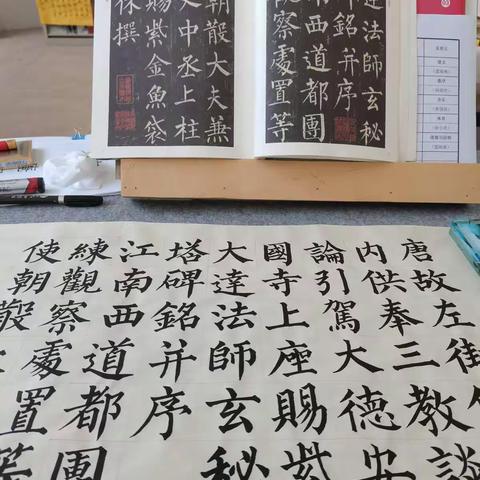 達法師玄秘
銘并序
南西道都團
察處置等
朝散大夫兼
史中丞上柱
賜紫金魚袋
休撰
唐故左街
內供奉三教談
論引駕大德安
國寺上座賜紫
大達法師玄秘
塔碑銘并序
江南西道都團
練觀察處置等
使朝散